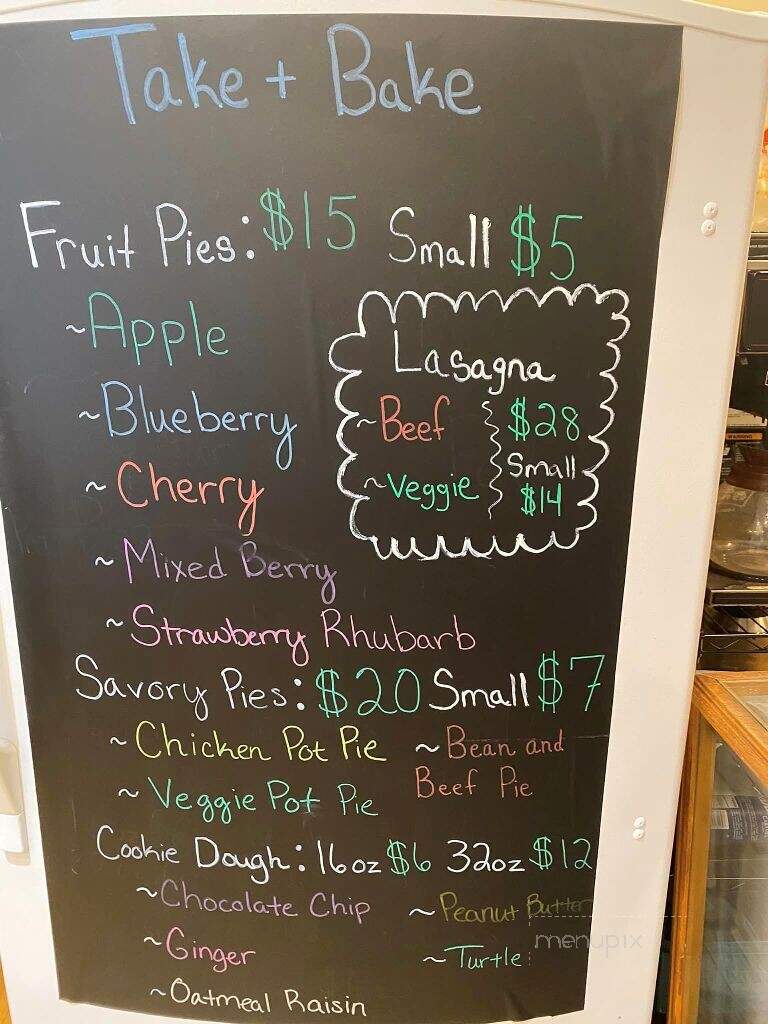 Take + Bake
Fruit Pies: $15 Small $5
~Apple
~Blueberry
~Cherry
~Mixed Berry
~Strawberry Rhubarb
Lasagna
~Beef $28
Small
~Veggie $14
Savory Pies: $20 Small $7
~Chicken Pot Pie ~Bean and
Beef Pie
~Veggie Pot Pie
Cookie Dough: 16oz $6 32oz $12
~Chocolate Chip ~Peanut Butter
~Ginger ~Turtle
~Oatmeal Raisin
menupix
WARNING